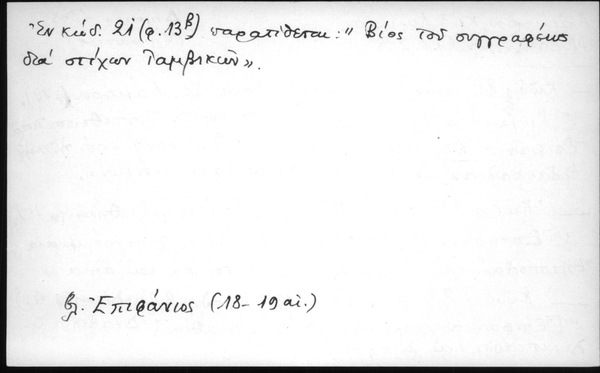 Ἐν κώδ. 21 (φ. 13β) παρατίθεται: "Βίος τοῦ συγγραφέως
διά στίχων Ἰαμβικῶν».
βλ. Ἐπιφάνιος (18-19 αἰ.)